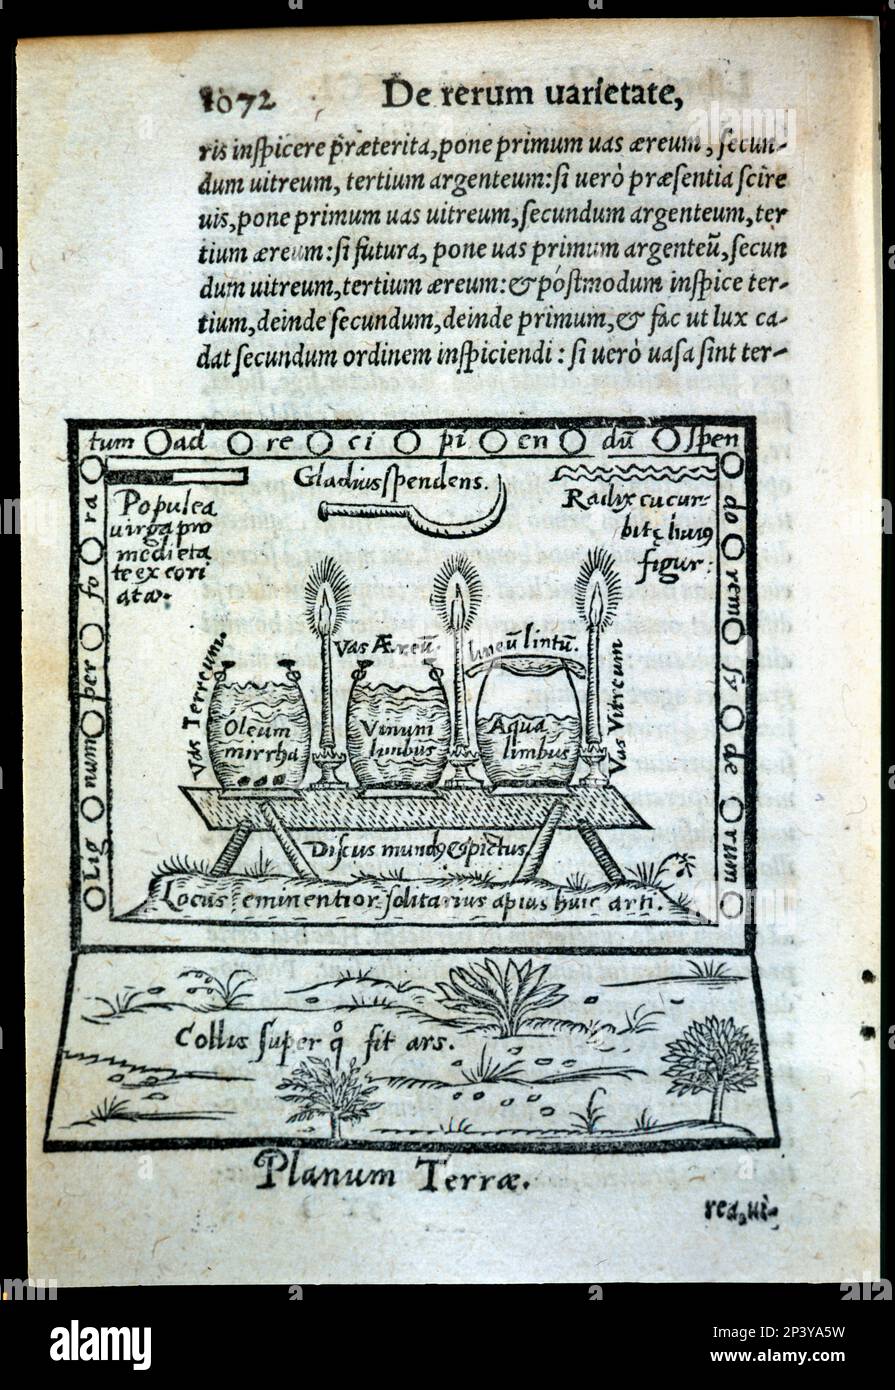 1072 De rerum uarietate,
ris inſpicere præterita, pone primum uas æreum, ſecun-
dum uitreum, tertium argenteum: ſi uerò præſentia ſcire
uis, pone primum uas uitreum, ſecundum argenteum, ter
tium æreum: ſi futura, pone uas primum argenteũ, ſecun
dum uitreum, tertium æreum: & póſtmodum inſpice ter-
tium, deinde ſecundum, deinde primum, & fac ut lux ca-
dat ſecundum ordinem inſpiciendi: ſi uerò uaſa ſint ter-
tum ad re ci pi en dũ ſpen
do rem ſy de rum
Lig num per fo ra
Gladius ſpendens.
Populea
uirga pro
medieta
te ex cori
atæ.
Radix cucur-
bitę huiꝰ
figur:
Vas Terreum.
Vas Æreũ.
lineũ lintũ.
Vas Vitreum
Oleum
mirrha
Vinum
limbus
Aqua
limbus
Diſcus mundꝰ & pictus.
Locus eminentior ſolitarius apius huic arti.
Collis ſuper q̊ fit ars.
Planum Terræ.
alamy
Image ID: 2P3YA5W
www.alamy.com